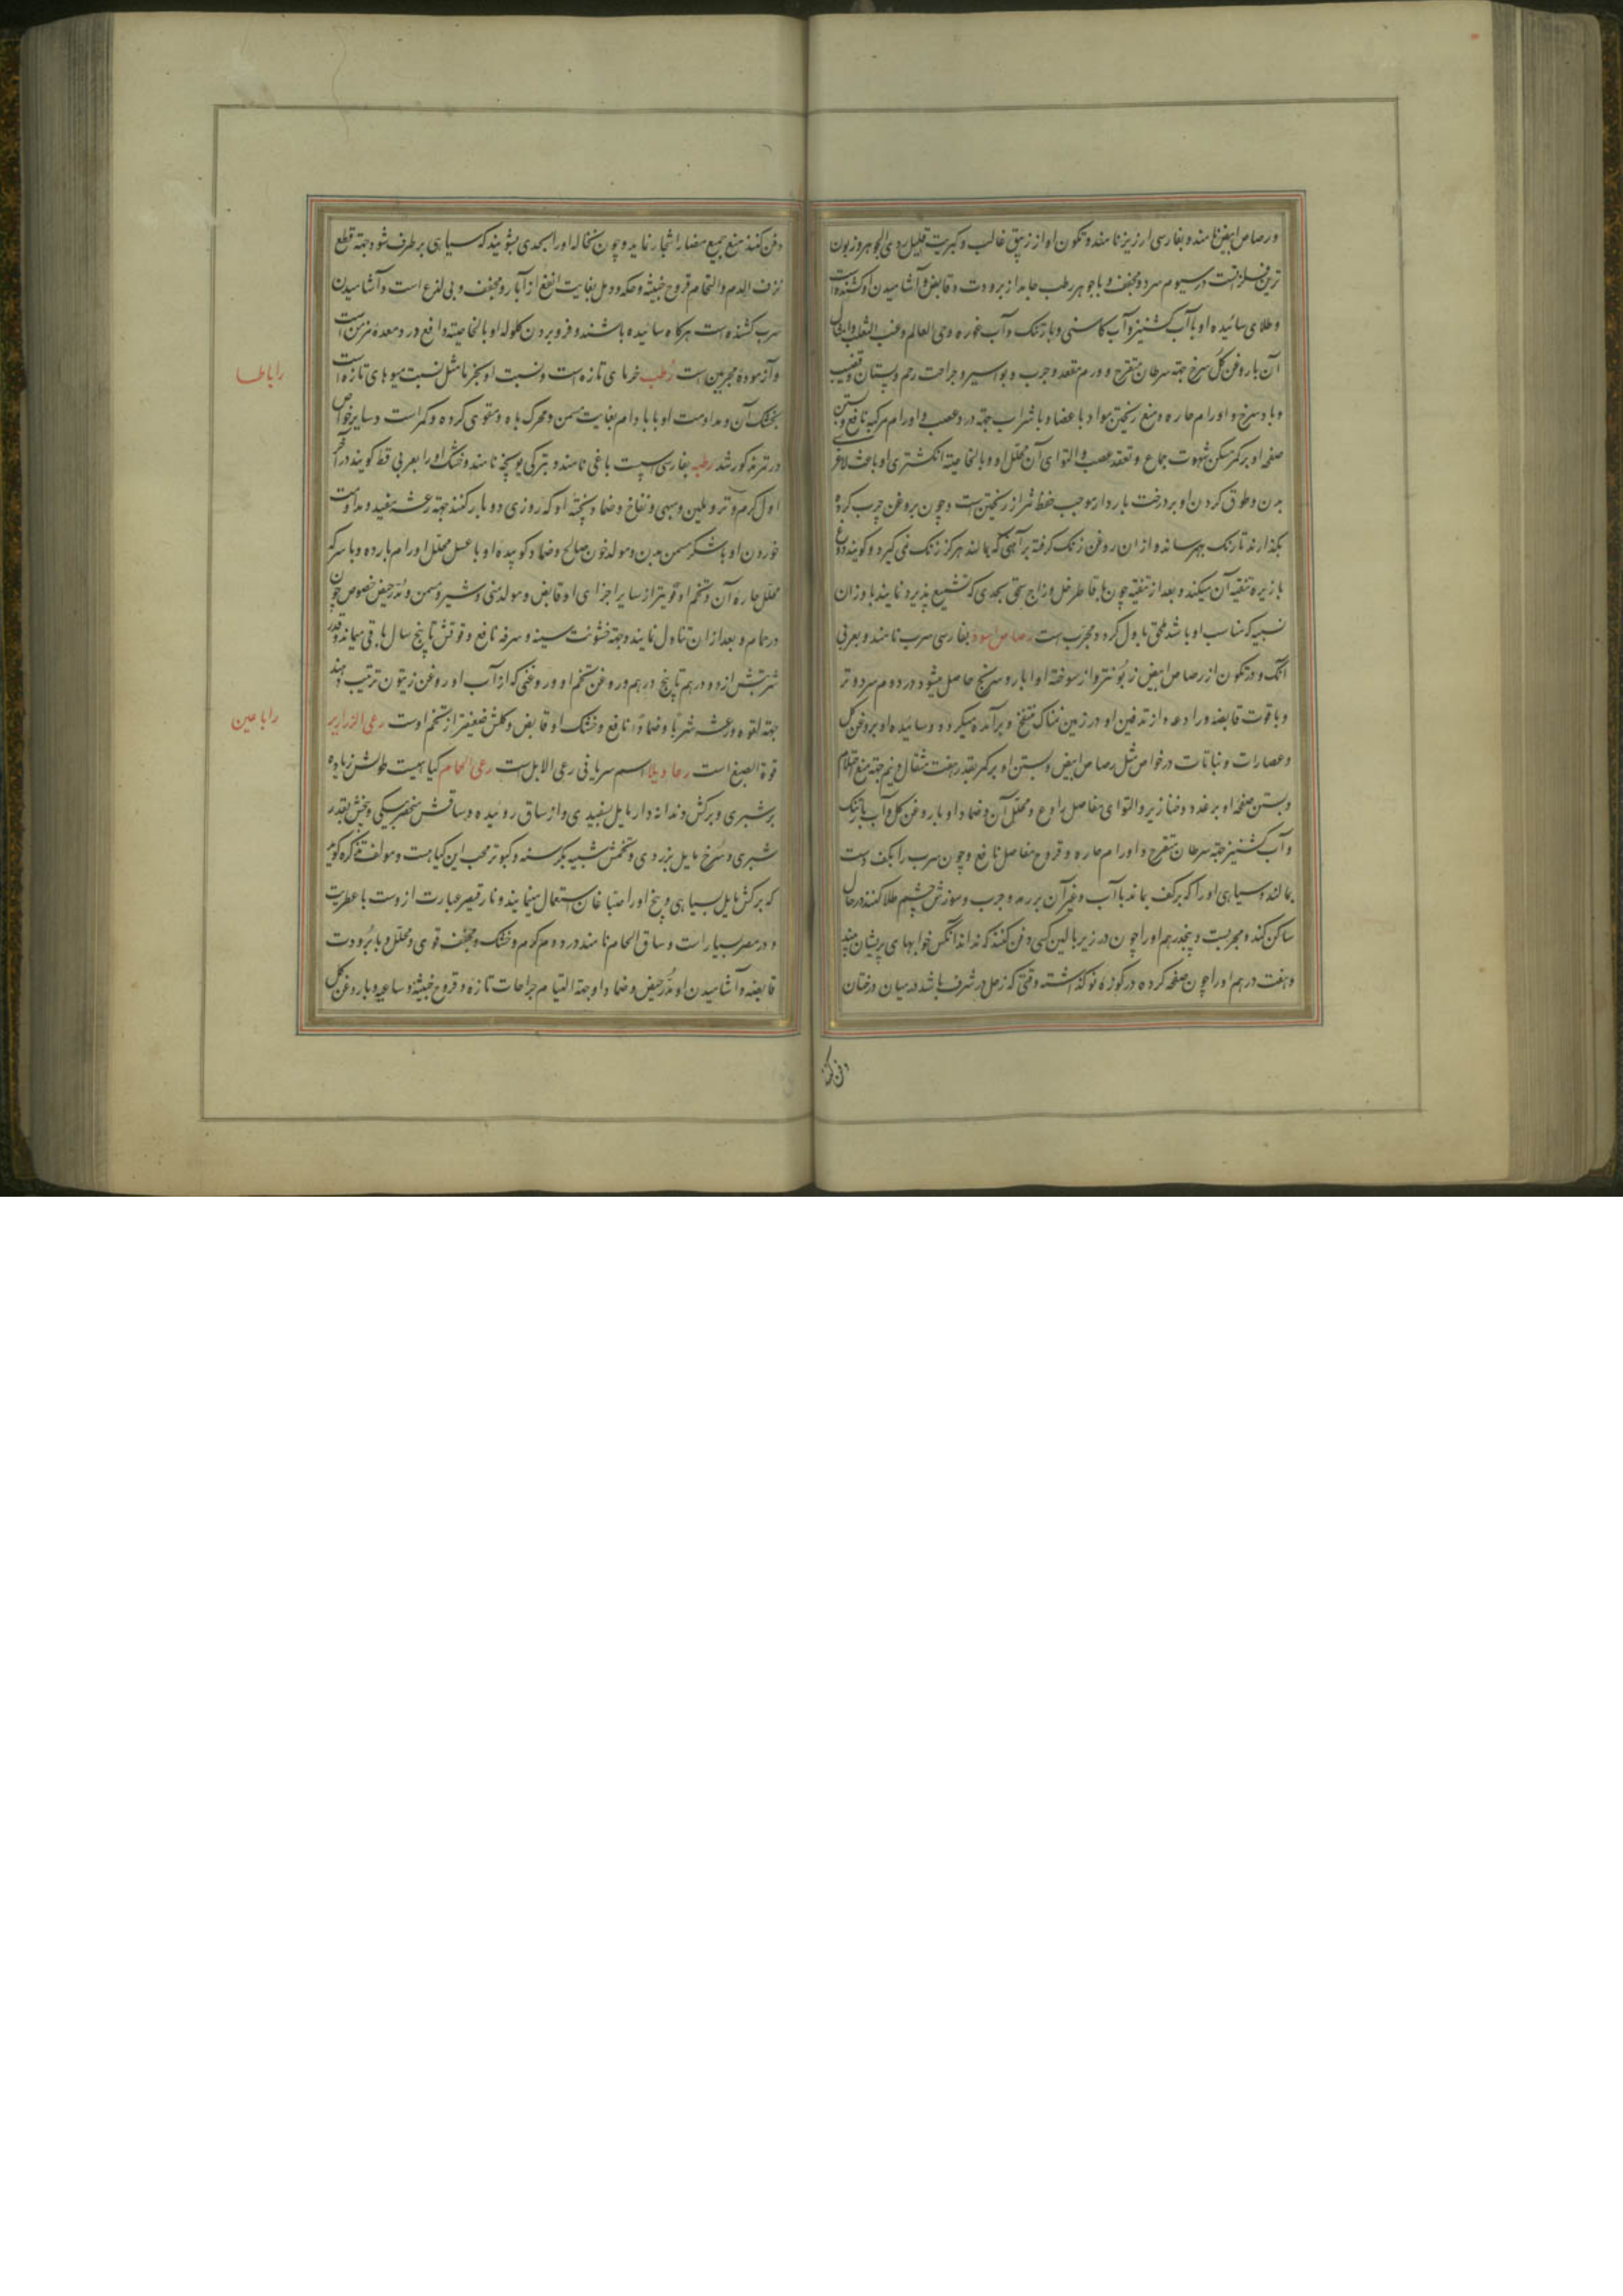 ورصاص ابیض نامند و بفارسی ارزیز نامند و تکون او از زیبق غالب و کبریت قلیل ردی الجوهر و زبون
ترین فلزاتست در سیوم سرد و مجفف و با جوهر رطب جامد از برودت و قابض و آشامیدن او کشنده است
و طلای سائیده او با آب کشنیز و آب کاسنی و بارتنگ و آب غوره و حی العالم و عنب الثعلب و امثال
آن با روغن گل سرخ جهته سرطان متقرح و ورم مقعد و جرب و بواسیر و جراحت رحم و پستان و قضیب
و باد سرخ و اورام حاره و منع ریختن مواد با عضا و با شراب جهته درد عصب و اورام مرکبه نافع و بستن
صفحه او بر کمر مسکن شهوت جماع و تعقد عصب و التوای آن و محلل او و بالخاصیته انگشتری او باعث لاغری
بدن و طوق کردن او بر درخت باردار موجب حفظ ثمر از ریختن است و چون بروغن چرب کرده
بگذارند تا زنک بهرساند و از ان روغن زنک گرفته بر آهنی که بمالند هرگز زنک نمی گیرد و گویند دوغ
بازیره تنقیه آن میکند و بعد از تنقیه چون با قاطر خل و زاج سحق بحدی که تشمیع پذیرد نمایند با وزان
نسبیه که مناسب او باشد ملحق باول گردد و مجرب است رصاص اسود بفارسی سرب نامند و بعربی
انک و در تکون از رصاص ابیض زبونتر و از سوخته او ابار و سرنج حاصل میشود در دوم سرد و تر
و با قوت قابضه و رادعه و از تدفین او در زمین نمناک منتفخ و برآمده میگردد و سائیده او بروغن گل
و عصارات و نباتات در خواص مثل رصاص ابیض و بستن او بر کمر بقدر هفت مثقال و نیم جهته منع احتلام
و بستن صفحه او بر غدد و خنازیر و التوای مفاصل رادع و محلل آن و ضماد او با روغن گل و آب بارتنگ
و آب کشنیز جهته سرطان متقرح و اورام حاره و قروح مفاصل نافع و چون سرب را بکف دست
بمالند و سیاهی او را که بر کف بماند با آب و غیر آن بر رمد و جرب و سوزش چشم طلا کنند در حال
ساکن کند و مجربست و پنجدرهم او را چون در زیر بالین کسی دفن کنند که نداند آنکس خوابهای پریشان بیند
و هفت درهم او را چون صفحه کرده در کوزه نو گذاشته وقتی که زحل در شرف باشد در میان درختان
دفن کنند
دفن کنند منع جمیع مضار اشجار نماید و چون نخاله او را بحدی بشویند که سیاهی بر طرف شود جهته قطع
نزف الدم و التحام قروح خبیثه و حکه و دمل بغایت انفع از آبار و مجفف و بی لذع است و آشامیدن
سرب کشنده است هرگاه سائیده باشند و فرو بردن گلوله او بالخاصیته دافع درد معده مزمن است
و آزموده مجربین است رطب خرمای تازه است و نسبت او بخرما مثل نسبت میوهای تازه است
بخشک آن و مداومت او با بادام بغایت مسمن و محرک باه و مقوی گرده و کمر است و سایر خواص
در تمر مذکور شد رطبه بفارسی اسپست باغی نامند و بترکی یونجه نامند و خشک او را بعربی قط گویند در آخر
اول گرم و تر و ملین و مبهی و نفاخ و ضماد پخته او که روزی دو بار کنند جهته رعشه مفید و مداومت
خوردن او با شکر مسمن بدن و مولد خون صالح و ضماد کوبیده او با عسل محلل اورام بارده و با سرکه
محلل حاره آن و تخم او قویتر از سایر اجزای او قابض و مولد منی و شیر و مسمن و مدر حیض خصوص چون
در حمام و بعد از ان تناول نمایند و جهته خشونت سینه و سرفه نافع و قوتش تا پنج سال باقی میماند و قدر
شربتش از دو درهم تا پنج درهم و روغن تخم او و روغنی که از آب او روغن زیتون ترتیب دهند
جهته لقوه و رعشه شربا و ضمادا نافع و خشک او قابض و گلش ضعیفتر از تخم اوست رعی الزرازیر
فوة الصبغ است رعادیلا اسم سریانی رعی الابل است رعی الحمام گیاهیست طولش زیاده
بر شبری و برگش دندانه دار مایل بسفیدی و از ساق روئیده و ساقش منحصر بیکی و بیخش بقدر
شبری و سرخ مایل بزردی و تخمش شبیه بکرسنه و کبوتر محب این گیاهست و مولف تذکره گوید
که برگش مایل بسیاهی و بیخ او را صباغان استعمال مینمایند و نارقیصر عبارت ازوست با عطریت
و در مصر بسیار است و ساق الحمام نامند در دوم گرم و خشک و مجفف قوی و محلل و با برودت
قابضه و آشامیدن او مدر حیض و ضماد او جهته التیام جراحات تازه و قروح خبیثه و ساعیه و با روغن گل
راباطا
راباعین